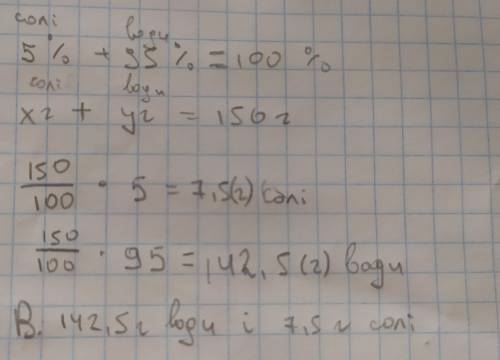 солі води
5% + 95% = 100 %
солі води
xг + yг = 150 г
150/100 · 5 = 7,5(г) солі
150/100 · 95 = 142,5(г) води
В. 142,5 г води і 7,5 г солі